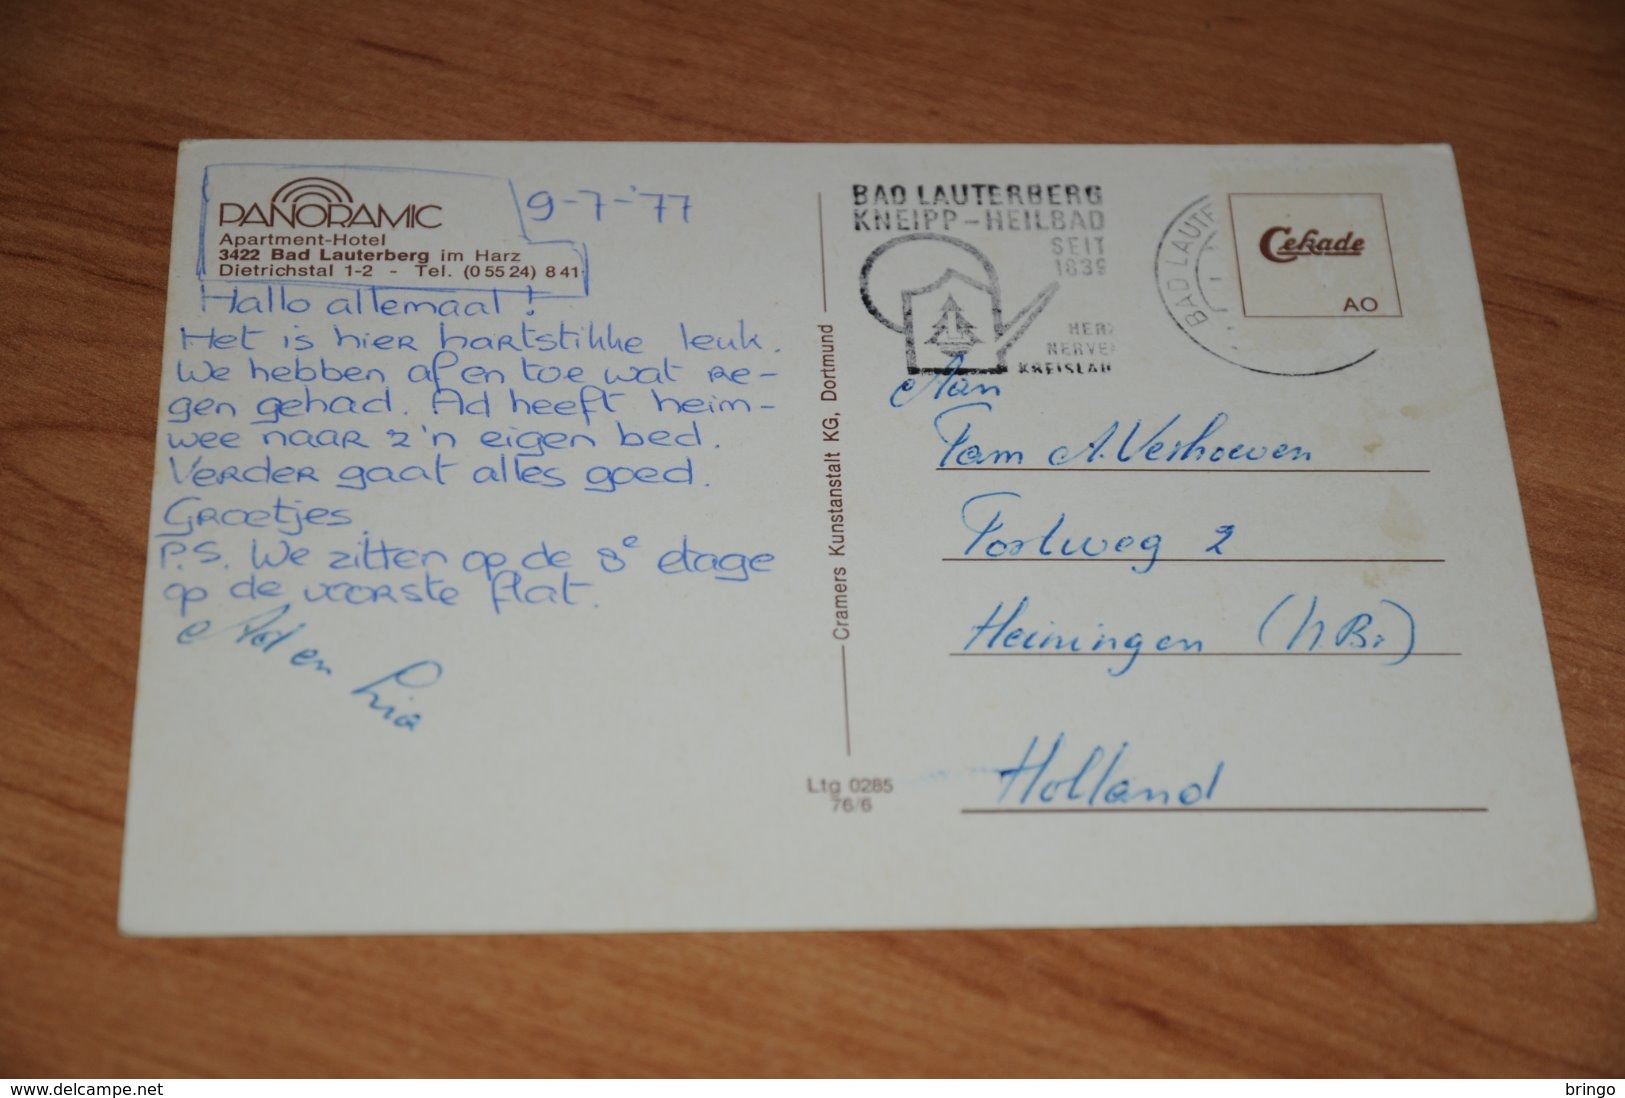 PANORAMIC
Apartment-Hotel
3422 Bad Lauterberg im Harz
Dietrichstal 1-2 - Tel. (0 55 24) 8 41
9-7-'77
Hallo allemaal!
Het is hier hartstikke leuk.
We hebben af en toe wat re-
gen gehad. Ad heeft heim-
wee naar z'n eigen bed.
Verder gaat alles goed.
Groetjes.
P.S. We zitten op de 8e etage
op de voorste flat.
Ad en Lia
Cramers Kunstanstalt KG, Dortmund
Ltg 0285
76/6
BAD LAUTERBERG
KNEIPP-HEILBAD
SEIT
1839
HERZ
NERVE
KREISLAU
BAD LAUTE
Cekade
AO
Aan
Fam A. Verhoeven
Fortweg 2
Heiningen (N.Br)
Holland
https://www.delcampe.net
bringo